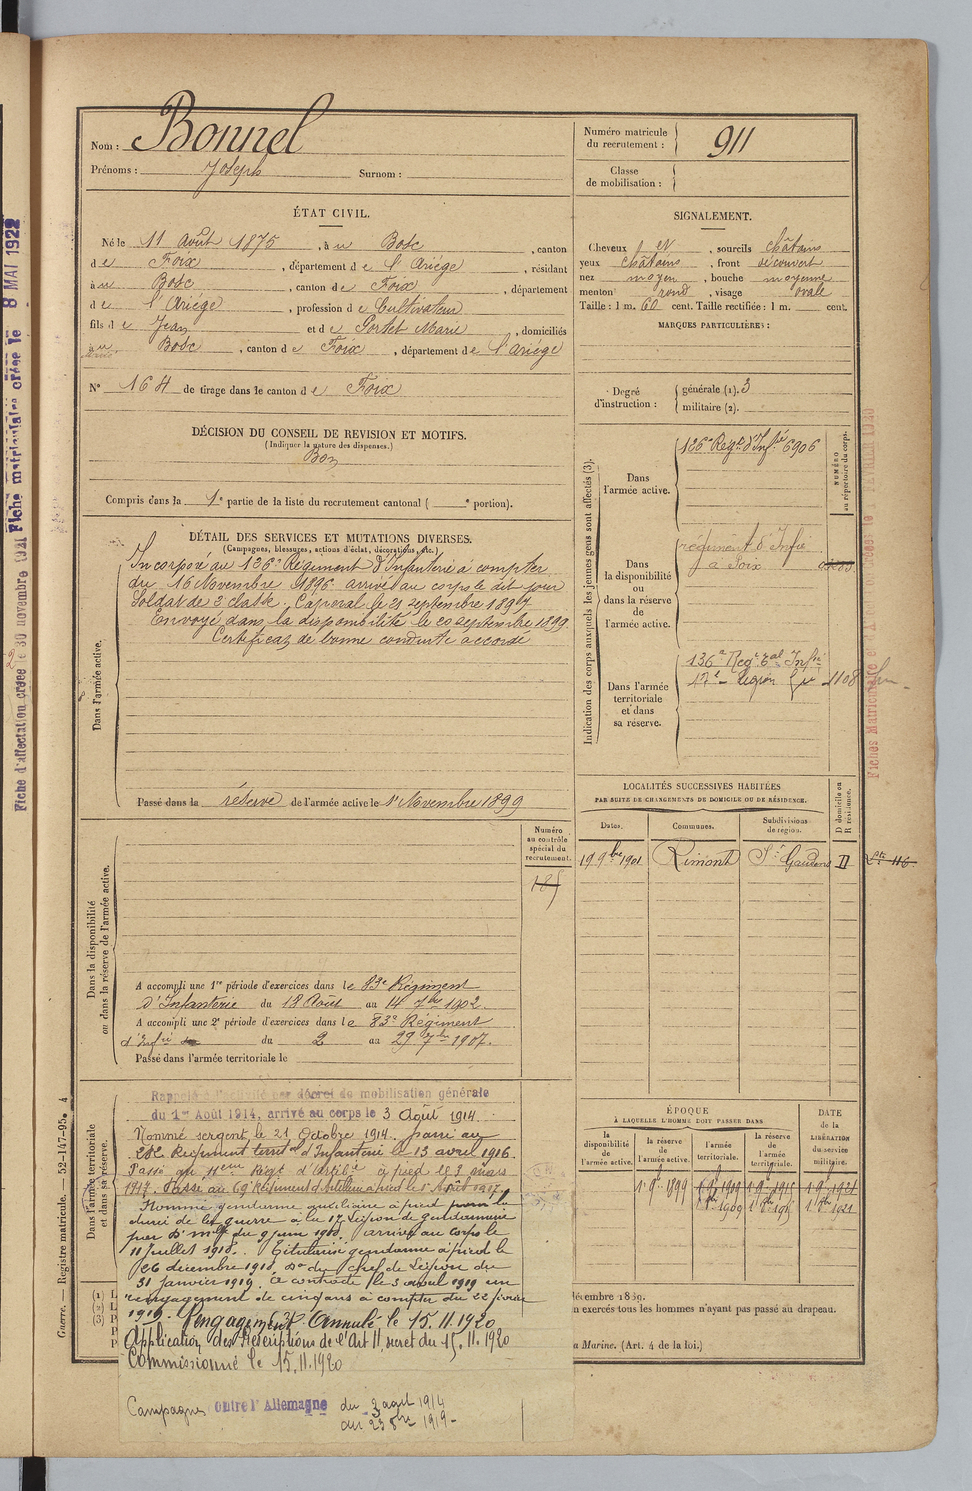 Nom : Bonnel
Prénoms : Joseph Surnom :
Numéro matricule du recrutement : 911
Classe de mobilisation :
ÉTAT CIVIL.
Né le 11 Août 1875, à u Bosc, canton
de Foix, département de l'Ariège, résidant
à u Bosc, canton de Foix, département
de l'Ariège, profession de Cultivateur
fils de Jean et de Portet Marie, domiciliés
à u Bosc, canton de Foix, département de l'Ariège
N° 164 de tirage dans le canton de Foix
DÉCISION DU CONSEIL DE REVISION ET MOTIFS.
(Indiquer la nature des dispenses.)
Bon
Compris dans la 1e partie de la liste du recrutement cantonal ( e portion).
SIGNALEMENT.
Cheveux et, sourcils châtains
yeux châtains, front découvert
nez moyen, bouche moyenne
menton rond, visage ovale
Taille : 1 m. 60 cent. Taille rectifiée : 1 m. cent.
MARQUES PARTICULIÈRES :
Degré d'instruction : générale (1). 3
militaire (2).
DÉTAIL DES SERVICES ET MUTATIONS DIVERSES.
(Campagnes, blessures, actions d'éclat, décorations, etc.)
Dans l'armée active.
Incorporé au 126e Régiment d'Infanterie à compter
du 16 Novembre 1896 arrivé au corps le dit jour
Soldat de 2 classe. Caporal le 21 septembre 1897
Envoyé dans la disponibilité le 20 septembre 1899
Certificat de bonne conduite accordé
Passé dans la réserve de l'armée active le 1er Novembre 1899
Indication des corps auxquels les jeunes gens sont affectés (3).
NUMÉRO au répertoire du corps.
Dans l'armée active.
126e Régt d'Infie 6906
Dans la disponibilité ou dans la réserve de l'armée active.
régiment d'Infie
à Foix
Dans l'armée territoriale et dans sa réserve.
136e Regt tal Infie
17e Légion 1108
Dans la disponibilité ou dans la réserve de l'armée active.
Numéro au contrôle spécial du recrutement.
A accompli une 1re période d'exercices dans le 83e Régiment
d'Infanterie du 18 Août au 14 7bre 1902
A accompli une 2e période d'exercices dans le 83e Régiment
d'Infie du 2 au 29 7bre 1907.
Passé dans l'armée territoriale le
LOCALITÉS SUCCESSIVES HABITÉES
PAR SUITE DE CHANGEMENTS DE DOMICILE OU DE RÉSIDENCE.
Dates. Communes. Subdivisions de région. D domicile ou R résidence.
19 9bre 1901 Rimont St Gaudens D
Dans l'armée territoriale et dans sa réserve.
Rappelé à l'activité par décret de mobilisation générale
du 1er Août 1914, arrivé au corps le 3 Août 1914.
Nommé sergent le 21 Octobre 1914. passé au
Régiment territal d'Infanterie le 13 avril 1916.
Passé au 11eme Régt d'Artie à pied le 3 mars
1917. Passé au 69e Régiment d'Artillerie à pied le 1er Août 1917.
Nommé gendarme auxiliaire à pied pour la
durée de la guerre à la 17 Légion de gendarmerie
par Don mlle du 9 juin 1918. arrivé au corps le
11 Juillet 1918. Titularisé gendarme à pied le
26 décembre 1918, Don du chef de Légion du
31 janvier 1919. A contracté le 3 avril 1919 un
rengagement de cinq ans à compter du 22 février
1919. Rengagement Annulé le 15.11.1920
Application des Prescriptions de l'Art 11, décret du 15.11.1920
Commissionné le 15.11.1920
Campagnes contre l'Allemagne du 3 août 1914
au 23 8bre 1919
ÉPOQUE À LAQUELLE L'HOMME DOIT PASSER DANS
la disponibilité de l'armée active. la réserve de l'armée active. l'armée territoriale. la réserve de l'armée territoriale.
DATE de la LIBÉRATION du service militaire.
1 9bre 1899
décembre 1889.
n exercés tous les hommes n'ayant pas passé au drapeau.
a Marine. (Art. 4 de la loi.)
Guerre. — Registre matricule. — 52-147-95. 4
Fiche d'affectation créée le 30 novembre 1921
Fiche matriculaire créée le 8 MAI 1922